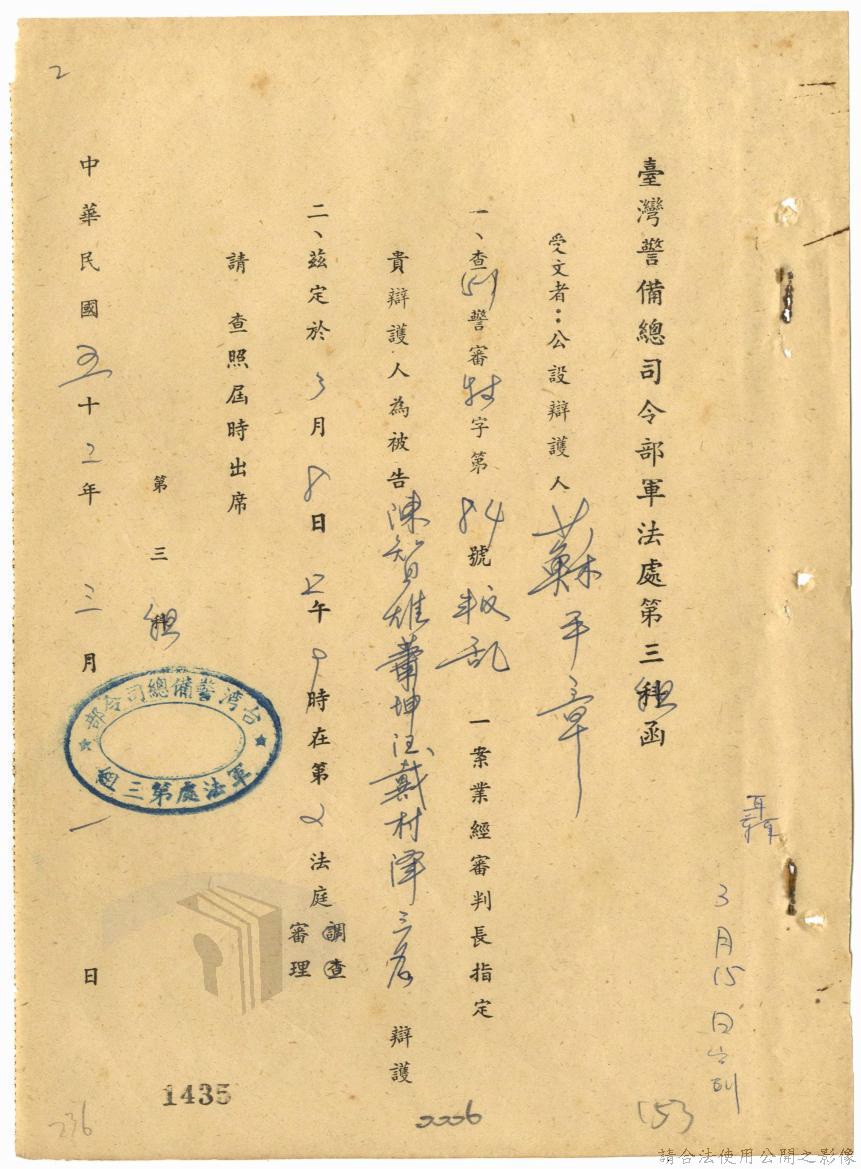 臺灣警備總司令部軍法處第三組函
受文者：公設辯護人蘇平章
一、查51警審特字第84號叛乱一案業經審判長指定
貴辯護人為被告陳智雄蕭坤旺戴村澤三名辯護
二、茲定於3月8日上午9時在第2法庭調查審理
請查照屆時出席
第三組
中華民國五十二年三月一日
台湾警備總司令部
軍法處第三組
3月15日宣判
2
1435
236
2226
153
請合法使用公開之影像